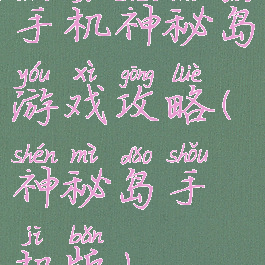 手机神秘岛
yóu xì gōng lüè
游戏攻略(
shén mì dǎo shǒu
神秘岛手
jī bǎn
机版)